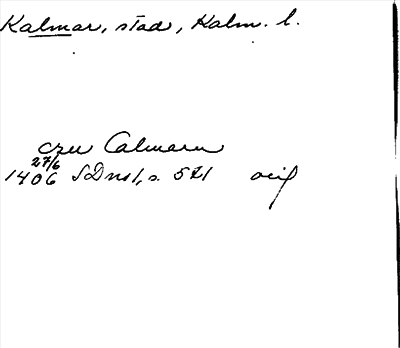 Kalmar, stad, Kalm. l.
czu Calmarn
27/6
1406 SDns 1, s. 521 orig